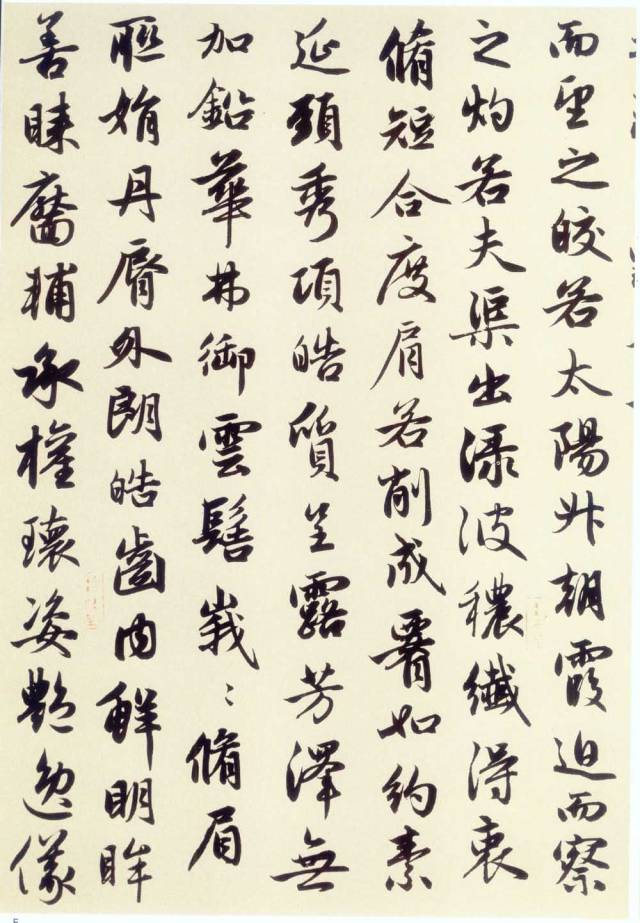 而望之皎若太陽升朝霞迫而察
之灼若夫渠出淥波穠纖得衷
脩短合度肩若削成𦝫如約素
延頸秀項皓質呈露芳澤無
加鉛華弗御雲髻峩〻脩眉
聮娟丹脣外朗皓齒內鮮明眸
善睞靨輔承權瓌姿艷逸儀